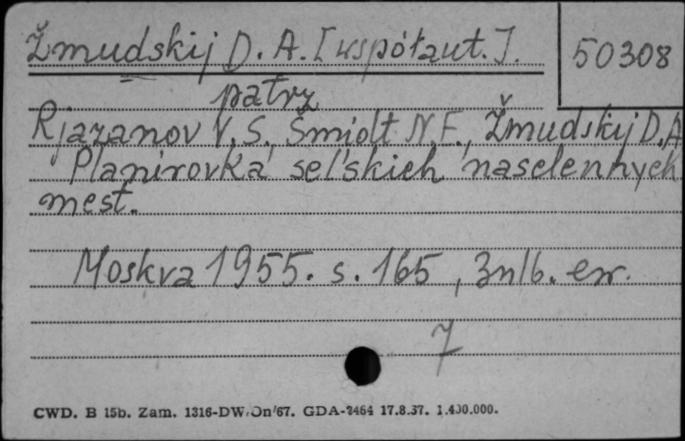 Žmudskij D. A. [współaut.].
50308
patrz
Rjazanov V. S., Šmidt N. F., Žmudskij D. A
Planirovka sel'skich naselennych
mest.
Moskva 1955. s. 165, 3nlb.
7
CWD. B 15b. Zam. 1316-DW/Dn/67. GDA-2464 17.8.37. 1.400.000.